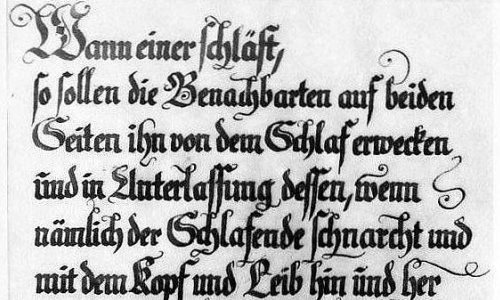 Wann einer schläft,
so sollen die Benachbarten auf beiden
Seiten ihn von dem Schlaf erwecken
und in Unterlassung dessen, wenn
nämlich der Schlafende schnarcht und
mit dem Kopf und Leib hin und her